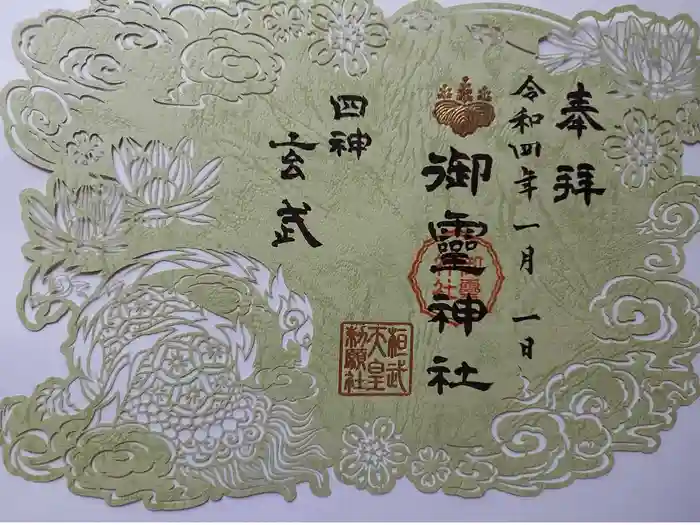 奉拝
令和四年一月一日
御靈神社
四神
玄武
桓武
天皇
勅願社